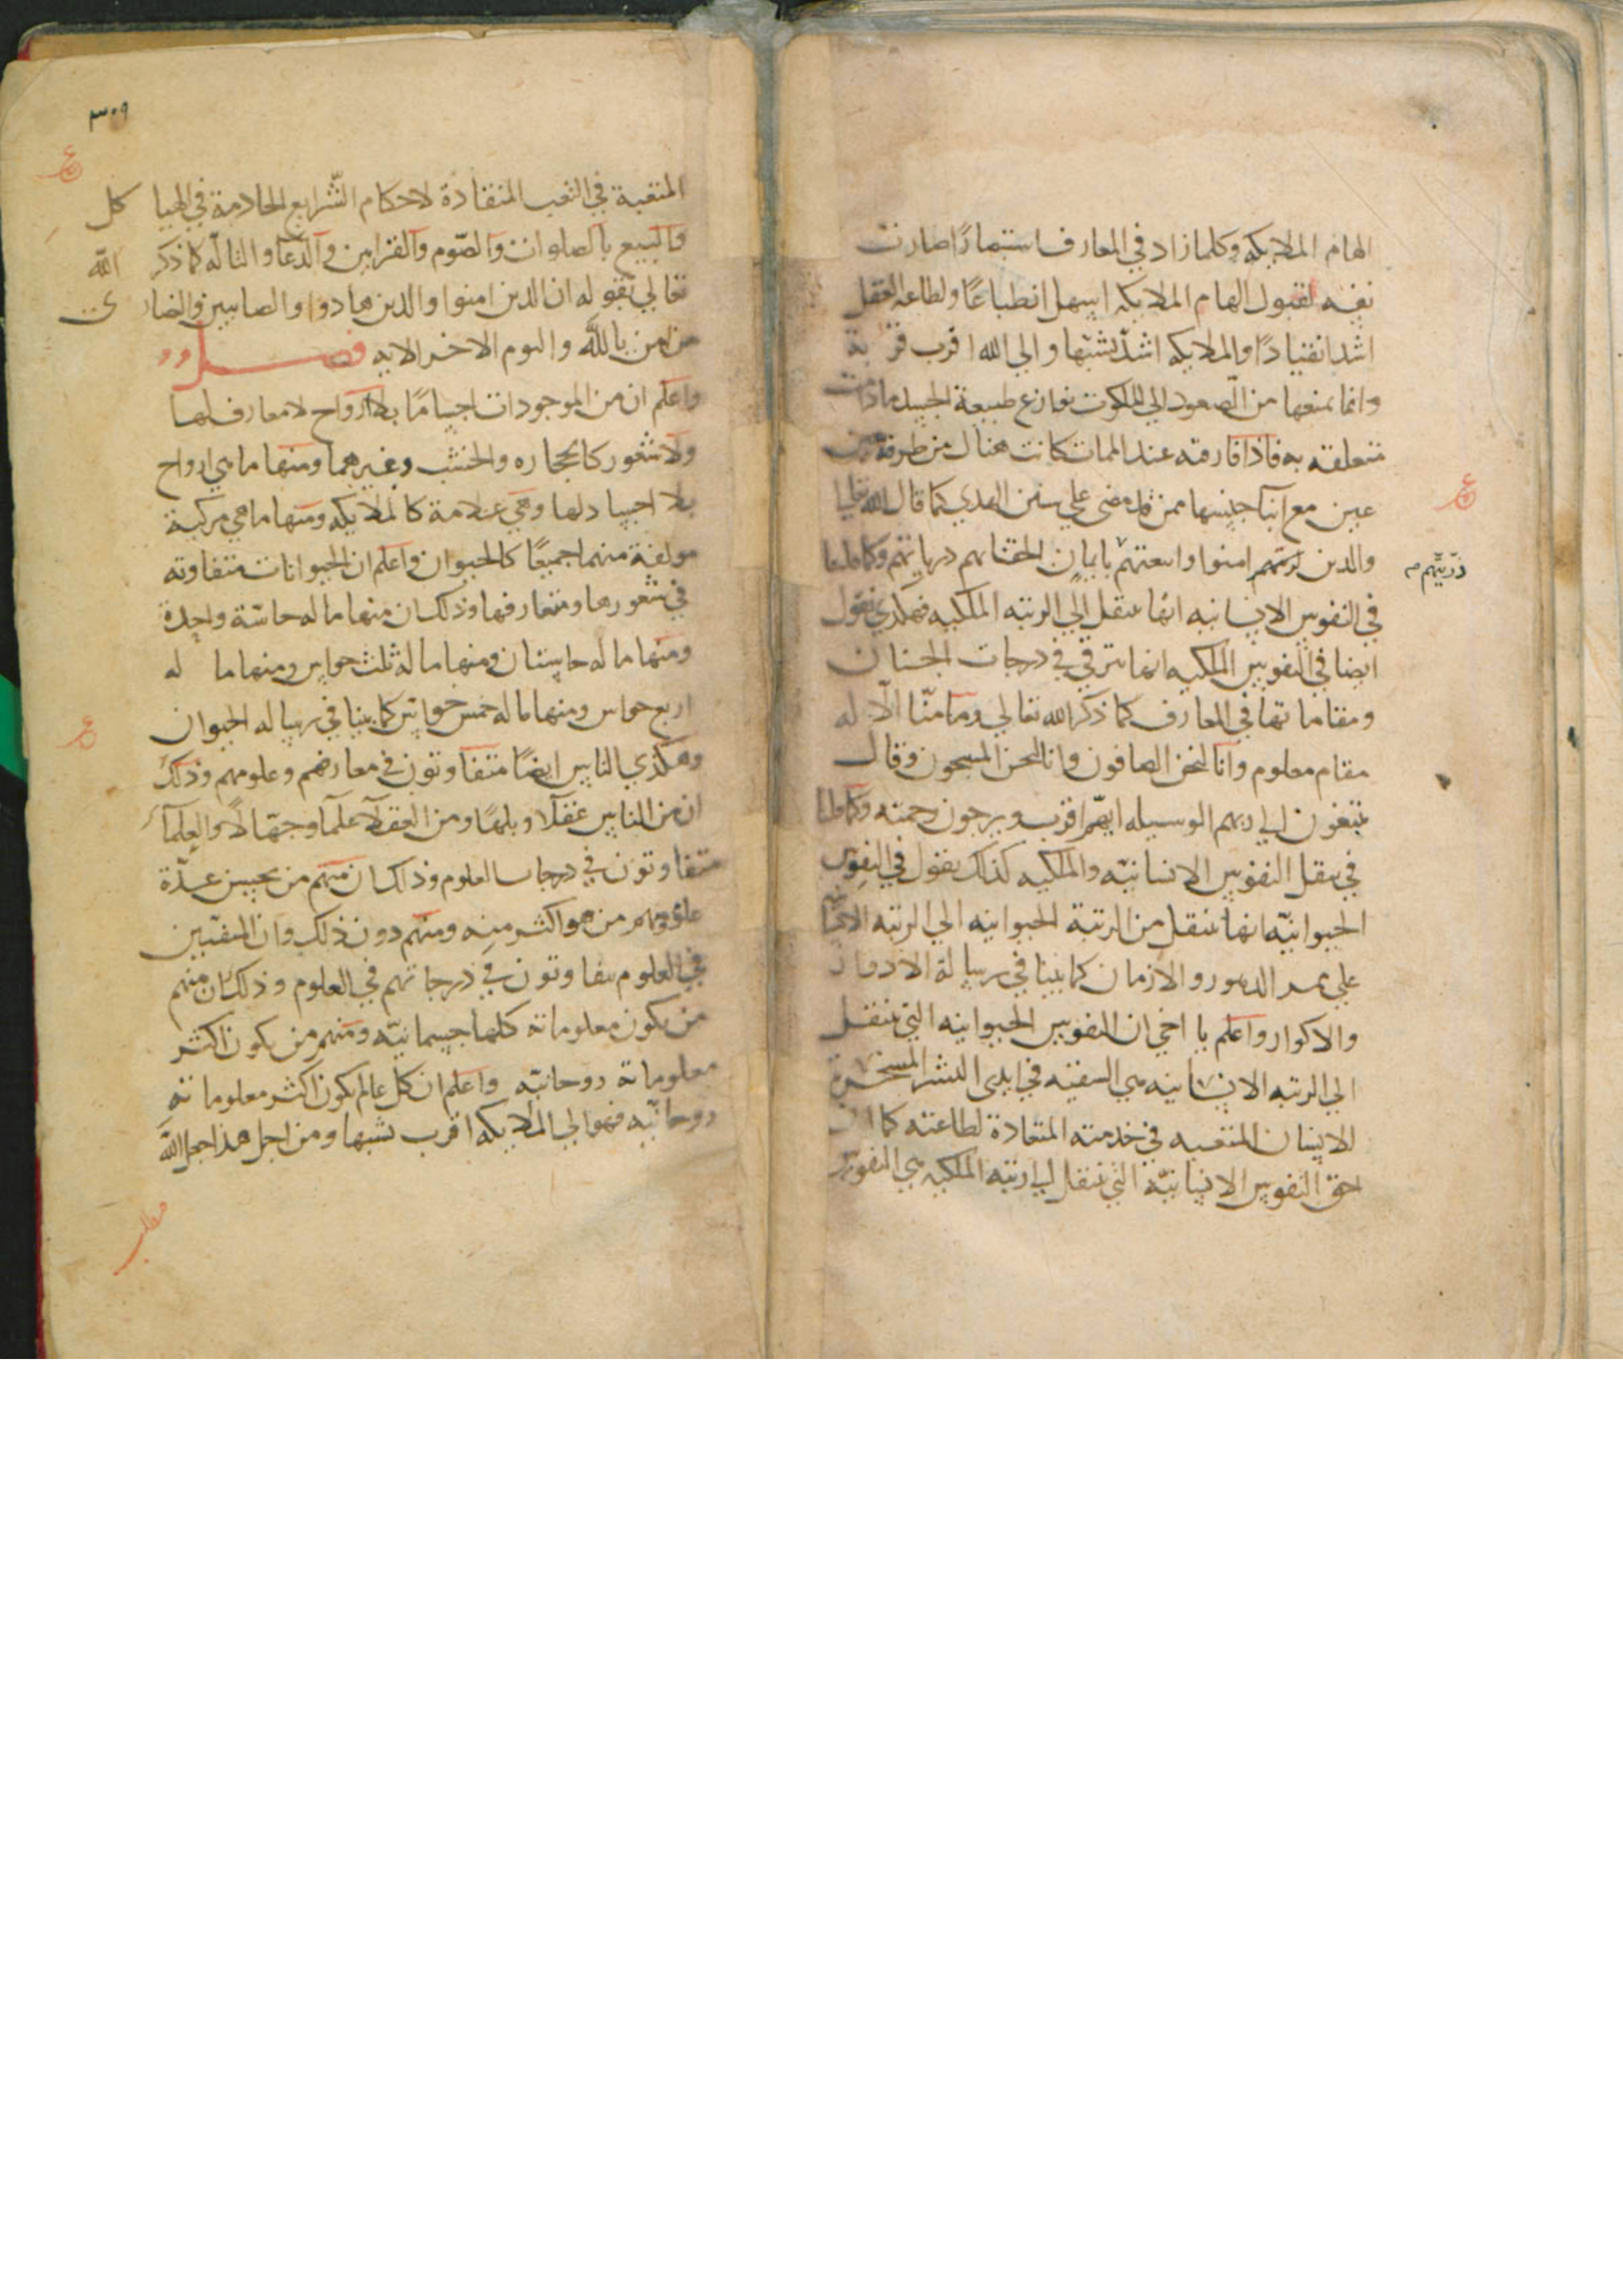 الهام الملايكه وكلما زاد في المعارف استبصارًا صارت
نفسه لقبول الهام الملايكه اسهل انطباعًا ولطاعه العقل
اشد انقيادًا والملايكه اشدّ تشبّها والى الله اقرب قربة
وانما يمنعها من الصعود الى الملكوت نوازع طبيعة الجسد ما دامت
متعلقه به فاذا فارقته عند الممات كانت هناك من طرفة
عين مع ابنآ جنسها ممن قد مضى على سنن الهدي كما قال الله تعالى
والذين امنوا واتبعتهم بايمان الحقنا بهم درياتهم وكما قلنا
ذرّيّتهم
في النفوس الانسانيه انها تنتقل الي الرتبه الملكيه فهكذي نقول
ايضا في النفوس الملكيه انها تترقي في درجات الجنان
ومقاماتها في المعارف كما ذكر الله تعالي وما منّا الّا له
مقام معلوم وانا لنحن الصافون وانا لنحن المسبحون وقال
يبتغون الي ربهم الوسيله ايهّم اقرب ويرجون رحمته وكما قلنا
في تنقل النفوس الانسانيّه والملكيه كذلك نقول في النفوس
الحيوانيّه انها تنتقل من الرتبة الحيوانيه الي الرتبه الانسانيه
علي ممر الدهور والازمان كما بينا في رسالة الادوار
والاكوار واعلم يا اخي ان النفوس الحيوانيه التي تنتقل
الي الرتبه الانسانيه هي الشقيّه في ايدى البشر المسخرة
للانسان المتعبه في خدمته المنقادة لطاعته كما ان
احق النفوس الانسانيّه التي تنتقل الي الرتبه الملكيه هي النفوس
٣٠٩
المتعبة في التعب المنقادة لاحكام الشّرايع الخادمة في الهياكل
والبيع بالصلوات والصّوم والقرابين والدّعآ والتالّه كما ذكر الله
تعالي بقوله ان الذين امنوا والذين هادوا والصابيين والنصارى
من امن بالله واليوم الاخر الايه فصل
واعلم ان من الموجودات اجسامًا بلا ارواح لا معارف لها
ولا شعور كالحجاره والخشب وغيرهما ومنها ما هي ارواح
بلا اجساد لها وهي علامة كالملايكه ومنها ما هي مركبة
مولفة منهما جميعًا كالحيوان واعلم ان الحيوانات متفاوته
في شعورها ومعارفها وذلك ان منها ما له حاسّة واحدة
ومنها ما له حاستان ومنها ما له ثلث حواس ومنها ما له
اربع حواس ومنها ما له خمس حواس كما بينا في رسالة الحيوان
وهكذي الناس ايضًا متفاوتون في معارفهم وعلومهم وذلك
ان من الناس عقلآ وبلهًا ومن العقلآ علمآ وجهالًا والعلمآ
متفاوتون في درجات العلوم وذلك ان منهم من يحسن عدّة
علوم ومنهم من هو اكثر منه ومنهم دون ذلك وان المتقنين
في العلوم متفاوتون في درجاتهم في العلوم وذلك ان منهم
من يكون معلوماته كلها جسمانيّه ومنهم من يكون اكثر
معلوماته روحانيّه واعلم ان كل عالم يكون اكثر معلوماته
روحانيّه فهو الي الملايكه اقرب تشبها ومن اجل هذا جعل الله
مطلب